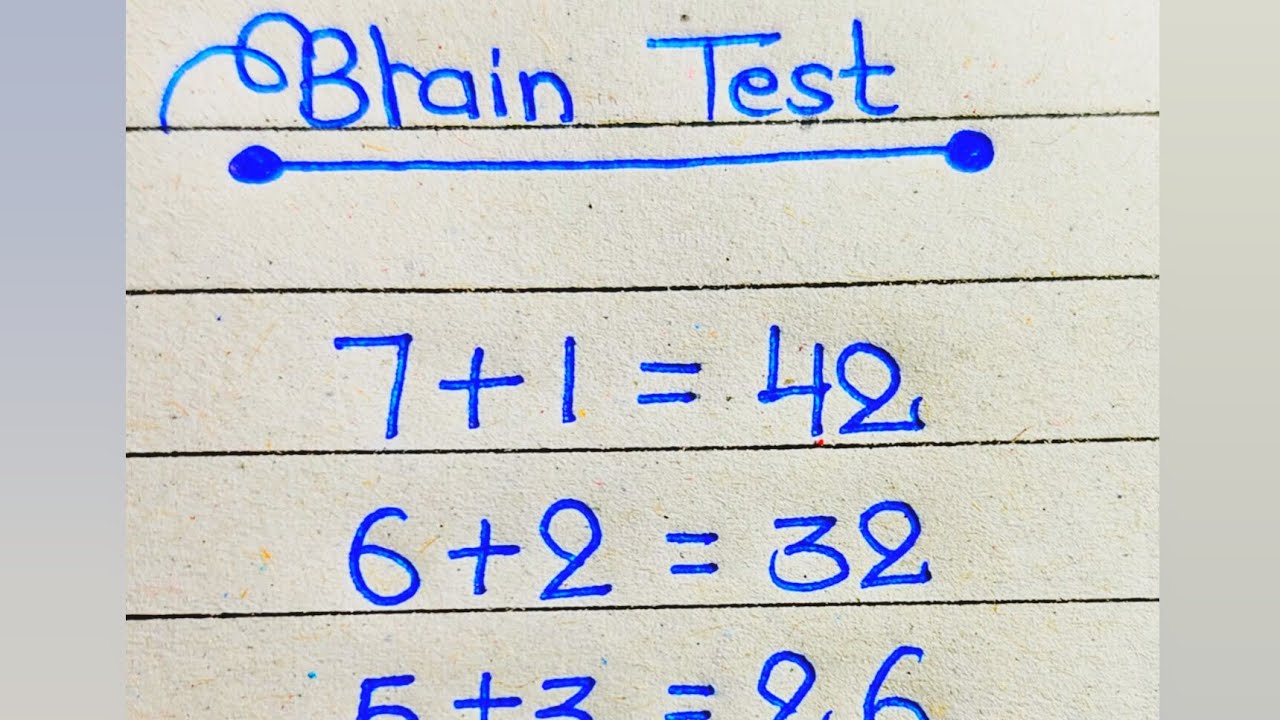 Brain Test
7+1=42
6+2=32
5+3=26